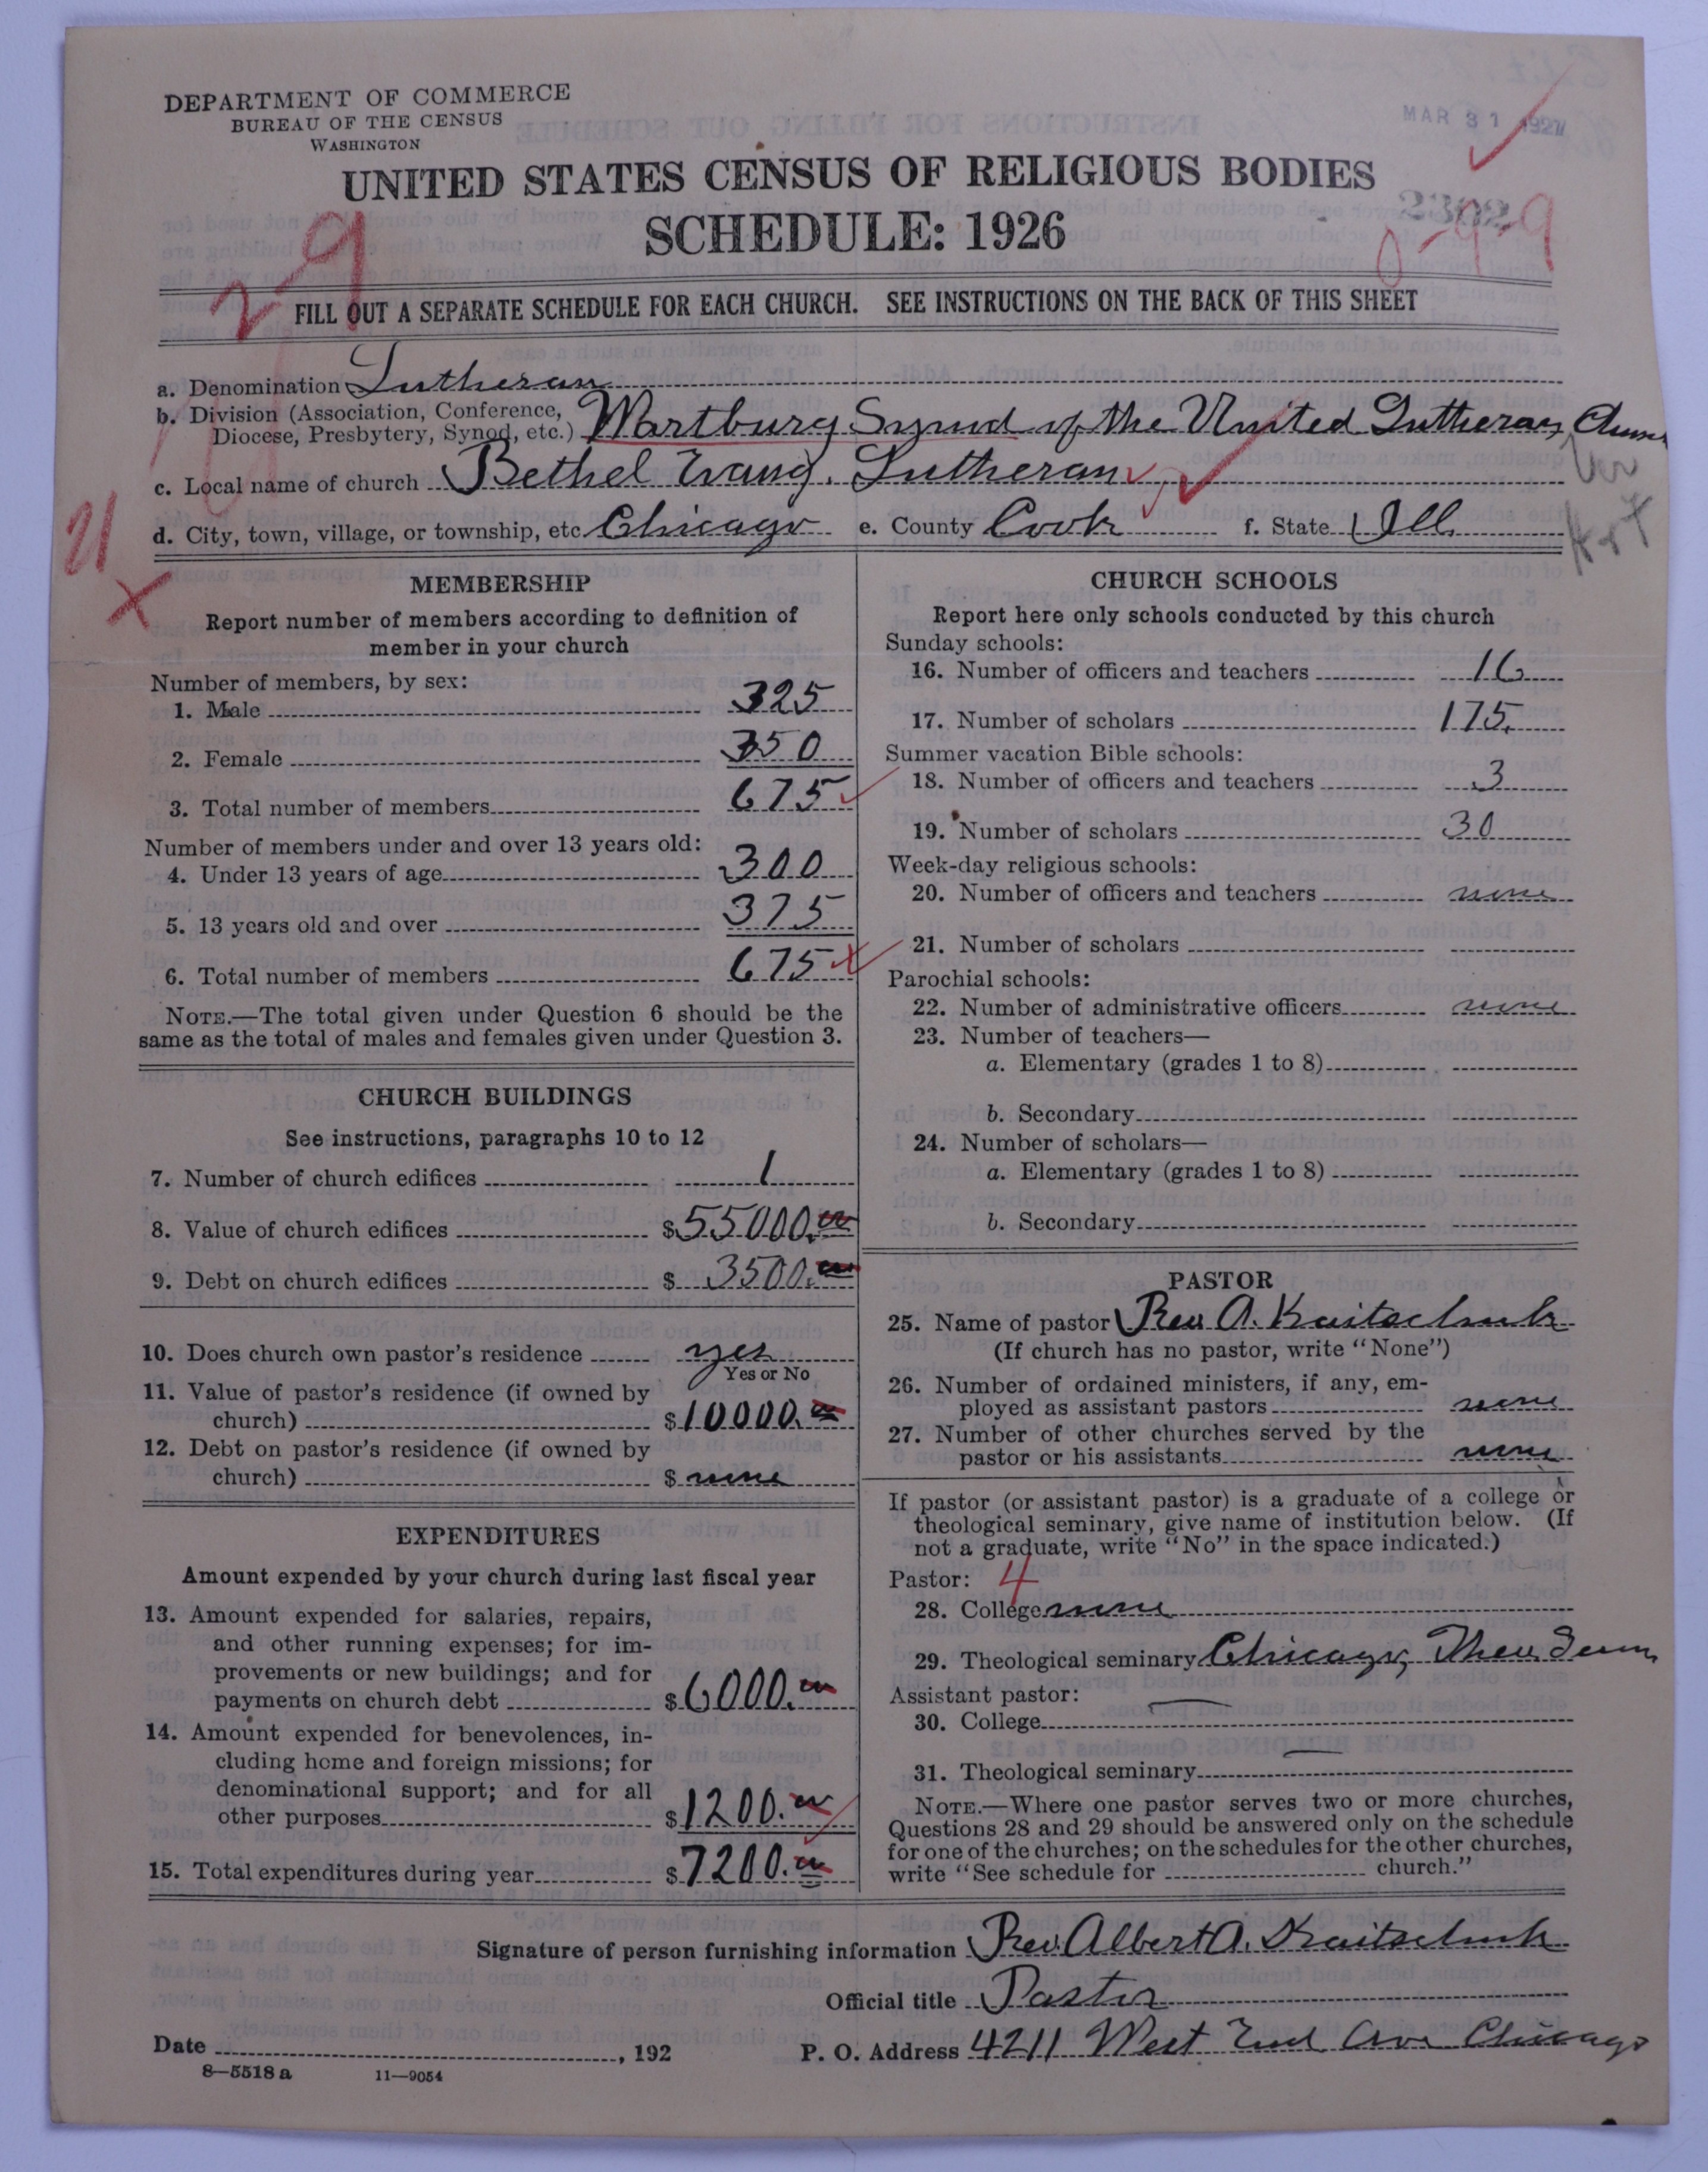 DEPARTMENT OF COMMERCE
BUREAU OF THE CENSUS
WASHINGTON
MAR 31 1927
UNITED STATES CENSUS OF RELIGIOUS BODIES
SCHEDULE: 1926
0-9-9
29
FILL OUT A SEPARATE SCHEDULE FOR EACH CHURCH. SEE INSTRUCTIONS ON THE BACK OF THIS SHEET
a. Denomination Lutheran
b. Division (Association, Conference, Diocese, Presbytery, Synod, etc.) Wartburg Synod of the United Lutheran Church
c. Local name of church Bethel Evang. Lutheran
d. City, town, village, or township, etc. Chicago e. County Cook f. State Ill.
21
X
MEMBERSHIP
Report number of members according to definition of
member in your church
Number of members, by sex:
1. Male 325
2. Female 350
3. Total number of members 675
Number of members under and over 13 years old:
4. Under 13 years of age 300
5. 13 years old and over 375
6. Total number of members 675
NOTE.—The total given under Question 6 should be the
same as the total of males and females given under Question 3.
CHURCH BUILDINGS
See instructions, paragraphs 10 to 12
7. Number of church edifices 1
8. Value of church edifices $55000.00
9. Debt on church edifices $ 3500.00
10. Does church own pastor's residence yes
Yes or No
11. Value of pastor's residence (if owned by
church) $10000.00
12. Debt on pastor's residence (if owned by
church) $ none
EXPENDITURES
Amount expended by your church during last fiscal year
13. Amount expended for salaries, repairs,
and other running expenses; for im-
provements or new buildings; and for
payments on church debt $6000.00
14. Amount expended for benevolences, in-
cluding home and foreign missions; for
denominational support; and for all
other purposes $1200.00
15. Total expenditures during year $7200.00
CHURCH SCHOOLS
Report here only schools conducted by this church
Sunday schools:
16. Number of officers and teachers 16
17. Number of scholars 175.
Summer vacation Bible schools:
18. Number of officers and teachers 3
19. Number of scholars 30
Week-day religious schools:
20. Number of officers and teachers none
21. Number of scholars
Parochial schools:
22. Number of administrative officers none
23. Number of teachers—
a. Elementary (grades 1 to 8)
b. Secondary
24. Number of scholars—
a. Elementary (grades 1 to 8)
b. Secondary
PASTOR
25. Name of pastor Rev A. Kaitschuk
(If church has no pastor, write "None")
26. Number of ordained ministers, if any, em-
ployed as assistant pastors none
27. Number of other churches served by the
pastor or his assistants none
If pastor (or assistant pastor) is a graduate of a college or
theological seminary, give name of institution below. (If
not a graduate, write "No" in the space indicated.)
Pastor: 4
28. College none
29. Theological seminary Chicago, Theo. Sem
Assistant pastor:
30. College
31. Theological seminary
NOTE.—Where one pastor serves two or more churches,
Questions 28 and 29 should be answered only on the schedule
for one of the churches; on the schedules for the other churches,
write "See schedule for church."
Signature of person furnishing information Rev. Albert A. Kaitschuk
Official title Pastor
Date , 192 P. O. Address 4211 West End Ave Chicago
8—5518 a 11—9054